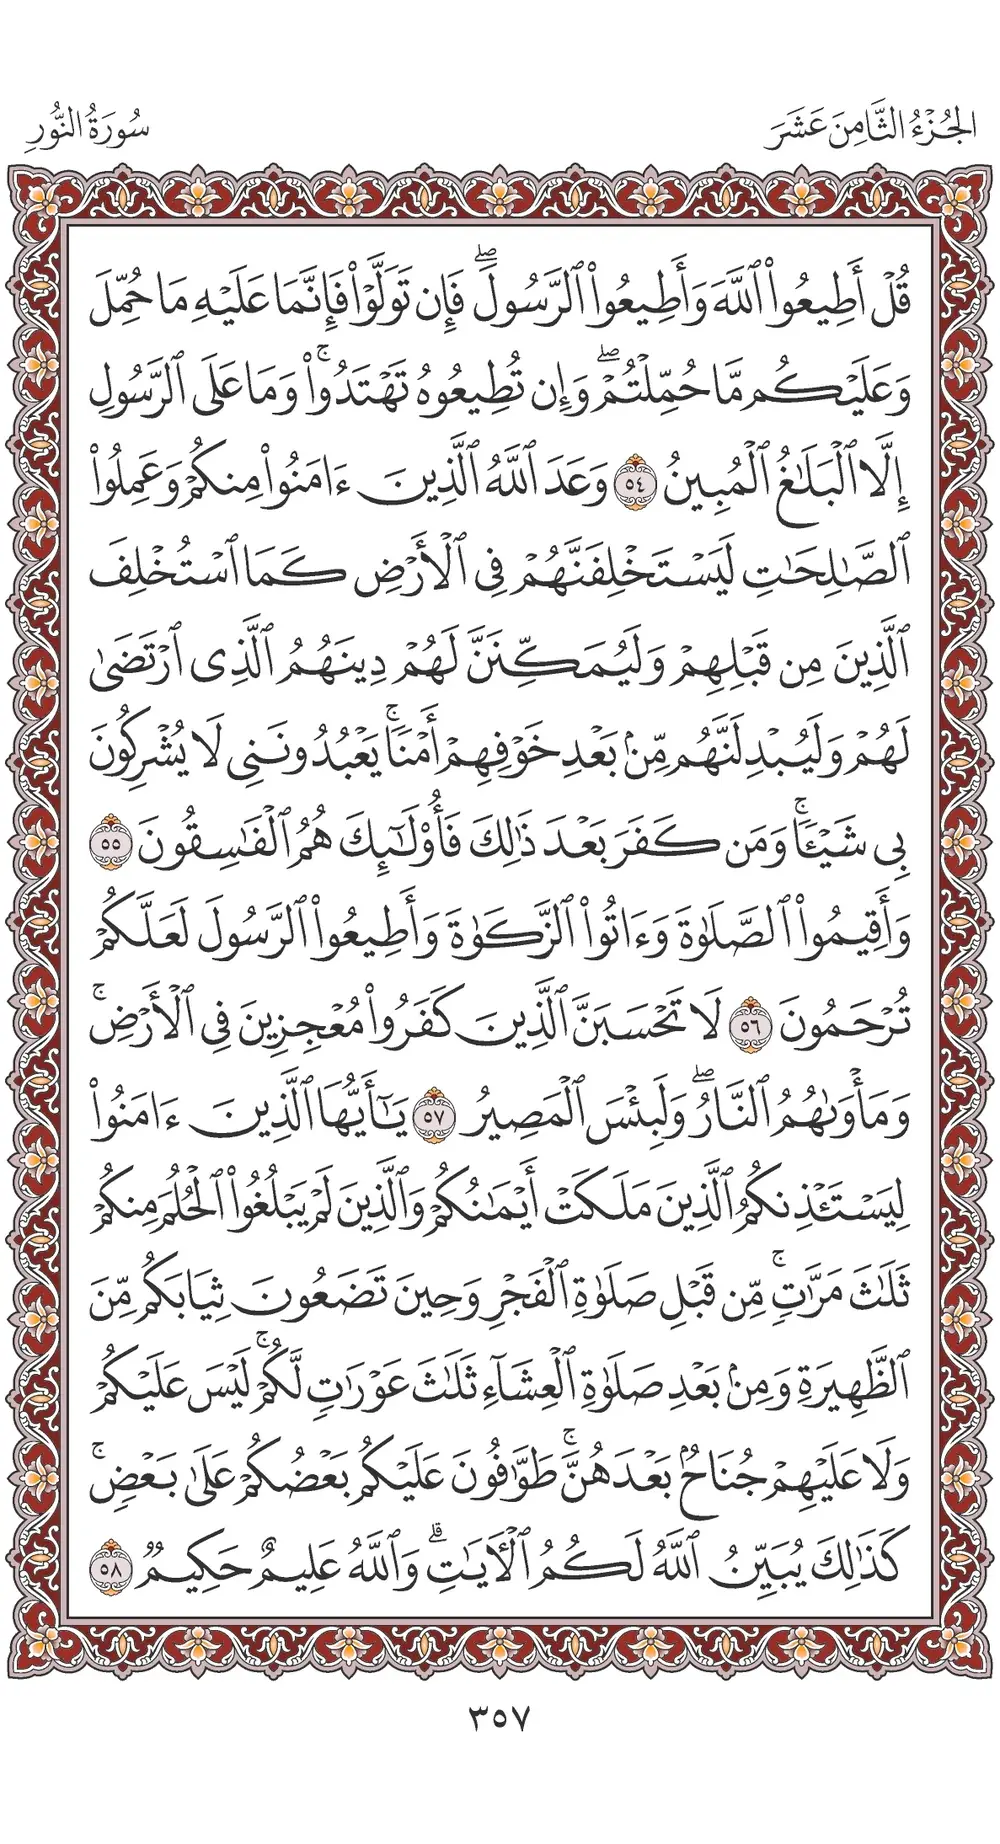 الجُزْءُ الثَّامِنَ عَشَرَ
سُورَةُ النُّورِ
قُلْ أَطِيعُوا۟ ٱللَّهَ وَأَطِيعُوا۟ ٱلرَّسُولَ ۖ فَإِن تَوَلَّوْا۟ فَإِنَّمَا عَلَيْهِ مَا حُمِّلَ
وَعَلَيْكُم مَّا حُمِّلْتُمْ ۖ وَإِن تُطِيعُوهُ تَهْتَدُوا۟ ۚ وَمَا عَلَى ٱلرَّسُولِ
إِلَّا ٱلْبَلَـٰغُ ٱلْمُبِينُ ٥٤ وَعَدَ ٱللَّهُ ٱلَّذِينَ ءَامَنُوا۟ مِنكُمْ وَعَمِلُوا۟
ٱلصَّـٰلِحَـٰتِ لَيَسْتَخْلِفَنَّهُمْ فِى ٱلْأَرْضِ كَمَا ٱسْتَخْلَفَ
ٱلَّذِينَ مِن قَبْلِهِمْ وَلَيُمَكِّنَنَّ لَهُمْ دِينَهُمُ ٱلَّذِى ٱرْتَضَىٰ
لَهُمْ وَلَيُبَدِّلَنَّهُم مِّنۢ بَعْدِ خَوْفِهِمْ أَمْنًا ۚ يَعْبُدُونَنِى لَا يُشْرِكُونَ
بِى شَيْـًٔا ۚ وَمَن كَفَرَ بَعْدَ ذَٰلِكَ فَأُو۟لَـٰٓئِكَ هُمُ ٱلْفَـٰسِقُونَ ٥٥
وَأَقِيمُوا۟ ٱلصَّلَوٰةَ وَءَاتُوا۟ ٱلزَّكَوٰةَ وَأَطِيعُوا۟ ٱلرَّسُولَ لَعَلَّكُمْ
تُرْحَمُونَ ٥٦ لَا تَحْسَبَنَّ ٱلَّذِينَ كَفَرُوا۟ مُعْجِزِينَ فِى ٱلْأَرْضِ ۚ
وَمَأْوَىٰهُمُ ٱلنَّارُ ۖ وَلَبِئْسَ ٱلْمَصِيرُ ٥٧ يَـٰٓأَيُّهَا ٱلَّذِينَ ءَامَنُوا۟
لِيَسْتَـْٔذِنكُمُ ٱلَّذِينَ مَلَكَتْ أَيْمَـٰنُكُمْ وَٱلَّذِينَ لَمْ يَبْلُغُوا۟ ٱلْحُلُمَ مِنكُمْ
ثَلَـٰثَ مَرَّٰتٍ ۚ مِّن قَبْلِ صَلَوٰةِ ٱلْفَجْرِ وَحِينَ تَضَعُونَ ثِيَابَكُم مِّنَ
ٱلظَّهِيرَةِ وَمِنۢ بَعْدِ صَلَوٰةِ ٱلْعِشَآءِ ۚ ثَلَـٰثُ عَوْرَٰتٍ لَّكُمْ ۚ لَيْسَ عَلَيْكُمْ
وَلَا عَلَيْهِمْ جُنَاحٌۢ بَعْدَهُنَّ ۚ طَوَّٰفُونَ عَلَيْكُم بَعْضُكُمْ عَلَىٰ بَعْضٍ ۚ
كَذَٰلِكَ يُبَيِّنُ ٱللَّهُ لَكُمُ ٱلْـَٔايَـٰتِ ۗ وَٱللَّهُ عَلِيمٌ حَكِيمٌ ٥٨
٣٥٧